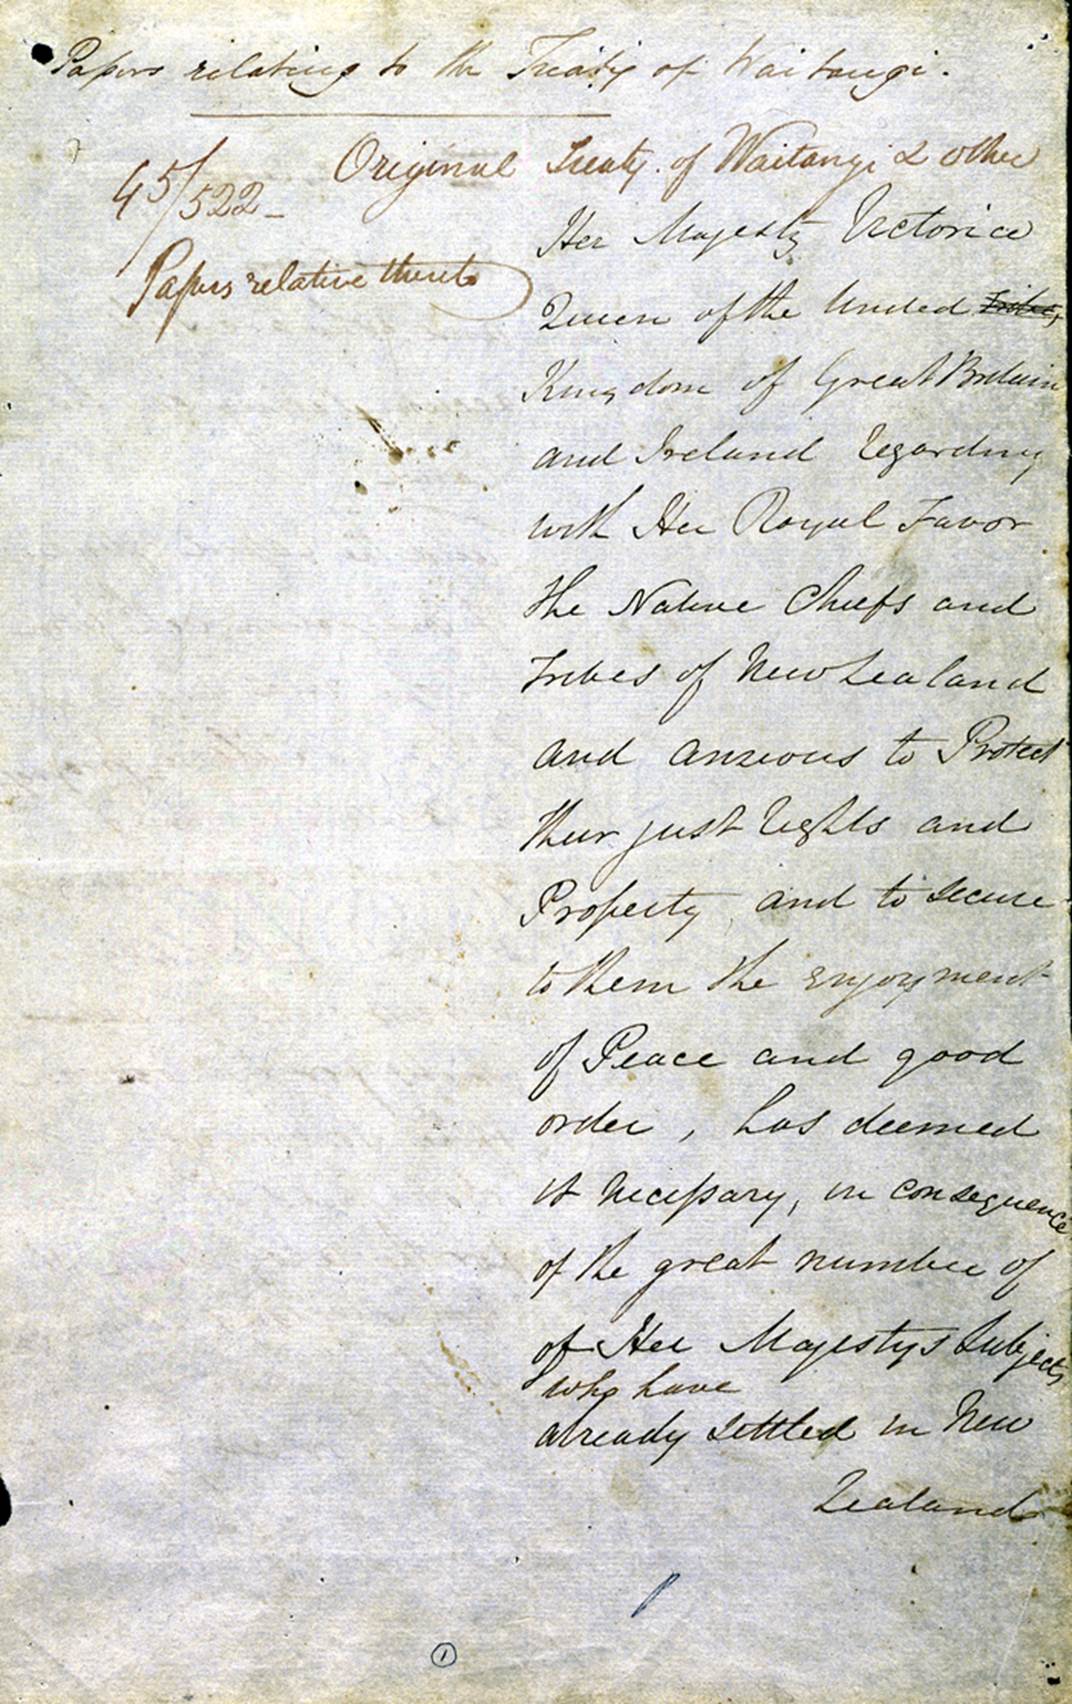 Papers relating to the Treaty of Waitangi.
45/522-
Original Treaty of Waitangi & other
Papers relative thereto
Her Majesty Victoria
Queen of the United Tribes,
Kingdom of Great Britain
and Ireland regarding
with Her Royal Favor
the Native Chiefs and
Tribes of New Zealand
and anxious to Protect
their just rights and
Property, and to secure
to them the enjoyment
of Peace and good
order, has deemed
it necessary, in consequence
of the great number of
of Her Majestys Subjects
who have
already settled in New
Zealand
1